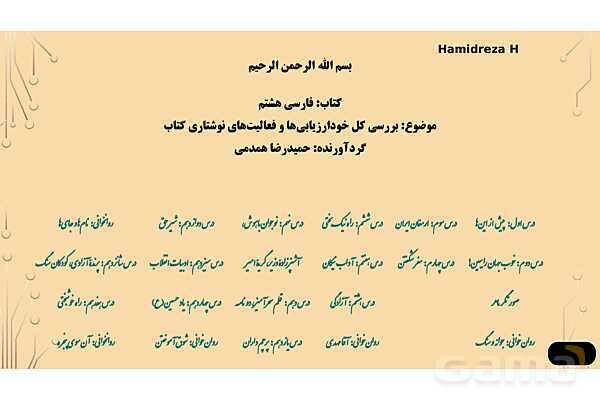 Hamidreza H
بسم الله الرحمن الرحیم
کتاب: فارسی هشتم
موضوع: بررسی کل خودارزیابی‌ها و فعالیت‌های نوشتاری کتاب
گردآورنده: حمیدرضا همدمی
درس اول: پیش از این‌ها
درس سوم: ارمغان ایران
درس ششم: راه نیک‌بختی
درس نهم: نوجوان باهوش،
درس دوازدهم: شیر حق
روانخوانی: نام‌ها و جای‌ها
درس دوم: خوب جهان را ببین!
درس چهارم: سفر شکفتن
درس هفتم: آداب نیکان
آشپززاده وزیر، گریهٔ امیر
درس سیزدهم: ادبیات انقلاب
درس شانزدهم: پرندهٔ آزادی، کودکان سنگ
صورتگر ماهر
درس هشتم: آزادگی
درس دهم: قلم سحرآمیز، دو نامه
درس چهاردهم: یاد حسین (ع)
درس هفدهم: راه خوشبختی
روان خوانی: جوانه و سنگ
روان خوانی: آقا مهدی
درس یازدهم: پرچم داران
روان خوانی: شوق آموختن
روانخوانی: آن سوی پنجره
Gama